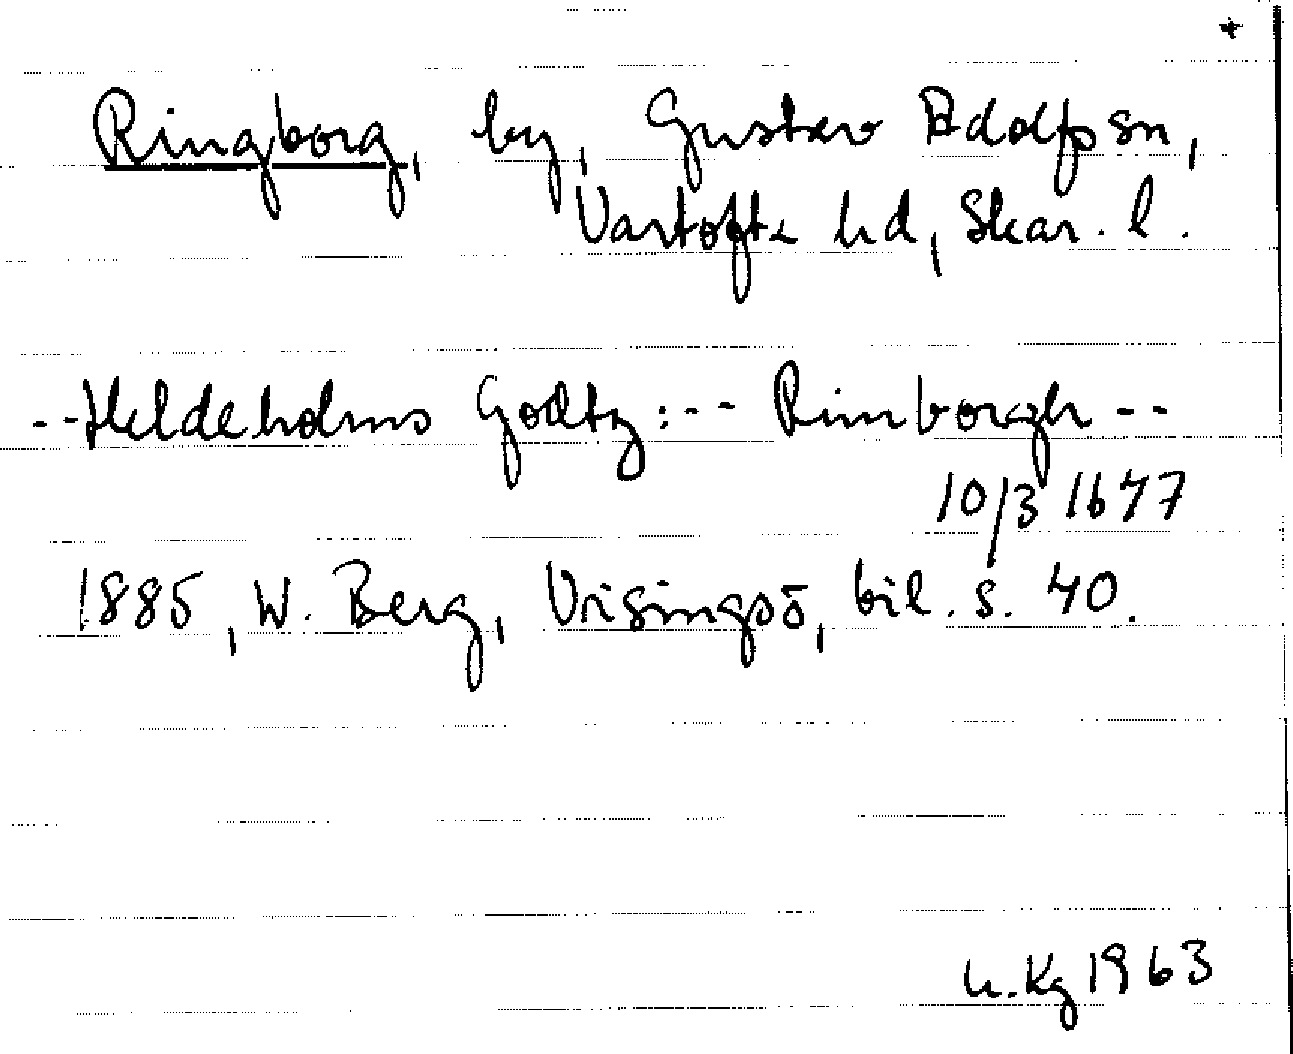 +
Ringborg, by, Gustav Adolfs sn,
Vartofta hd, Skar. l.
--Heldeholms Godtz:-- Rimborgh --
10/3 1677
1885, W. Berg, Visingsö, bil. s. 40.
h. Kg 1963